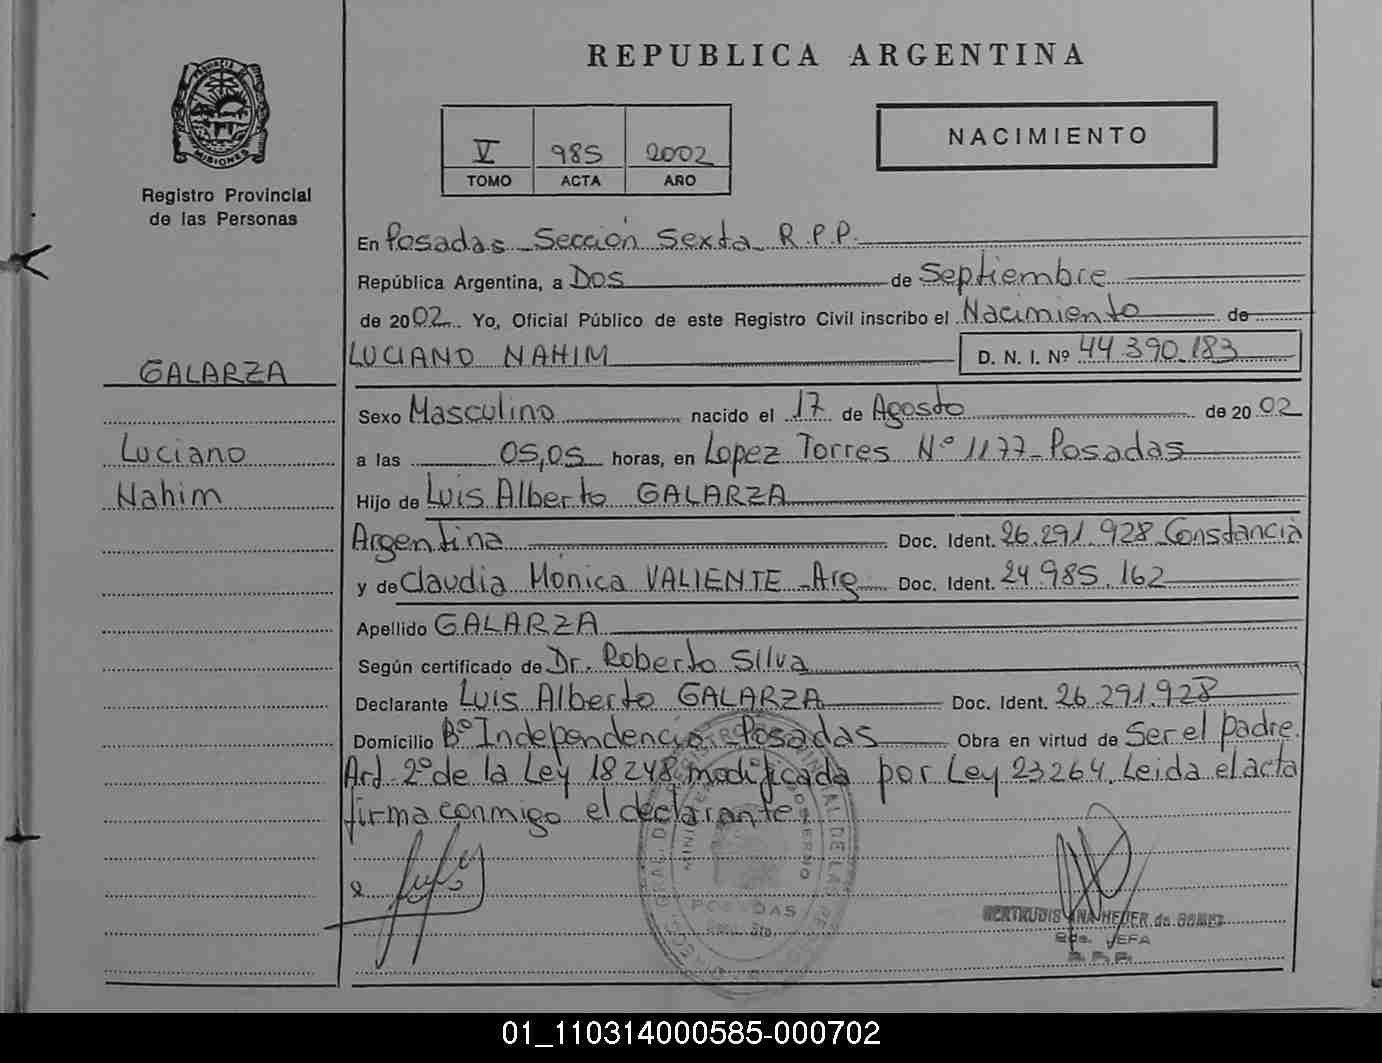 PROVINCIA DE
MISIONES
Registro Provincial
de las Personas
REPUBLICA ARGENTINA
V 985 2002
TOMO ACTA AÑO
NACIMIENTO
En Posadas Sección Sexta R.P.P.
República Argentina, a Dos de Septiembre
de 2002. Yo, Oficial Público de este Registro Civil inscribo el Nacimiento de
LUCIANO NAHIM D. N. I. Nº 44.390.183
GALARZA
Luciano
Nahim
Sexo Masculino nacido el 17 de Agosto de 2002
a las 05,05 horas, en Lopez Torres Nº 1177 - Posadas
Hijo de Luis Alberto GALARZA
Argentina Doc. Ident. 26.291.928 Constancia
y de Claudia Mónica VALIENTE - Arg Doc. Ident. 24.985.162
Apellido GALARZA
Según certificado de Dr. Roberto Silva
Declarante Luis Alberto GALARZA Doc. Ident. 26.291.928
Domicilio Bº Independencia - Posadas Obra en virtud de Ser el padre.
Art. 2º de la Ley 18248 modificada por Ley 23264. Leida el acta
firma conmigo el declarante.
POSADAS
GERTRUDIS ANA HEUER de GOMEZ
JEFA
R.P.P.
01_110314000585-000702